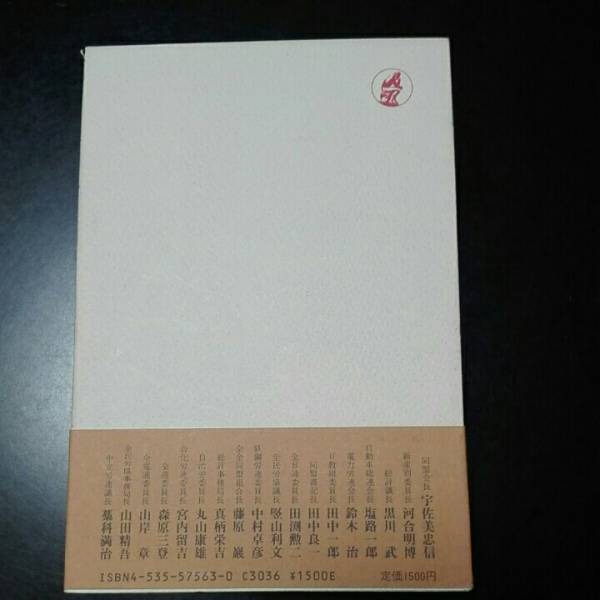 同盟会長 宇佐美忠信
新産別委員長 河合明博
総評議長 黒川 武
自動車総連会長 塩路一郎
電力労連会長 鈴木 治
日教組委員長 田中一郎
同盟書記長 田中良一
全日通委員長 田渕勲二
全民労協議長 竪山利文
鉄鋼労連委員長 中村卓彦
全金同盟組合長 藤原 巌
総評事務局長 真柄栄吉
自治労委員長 丸山康雄
合化労連委員長 宮内留吉
全逓委員長 森原三登
全電通委員長 山岸 章
全民労協事務局長 山田精吾
中立労連議長 藁科満治
ISBN4-535-57563-0 C3036 ¥1500E 定価1500円